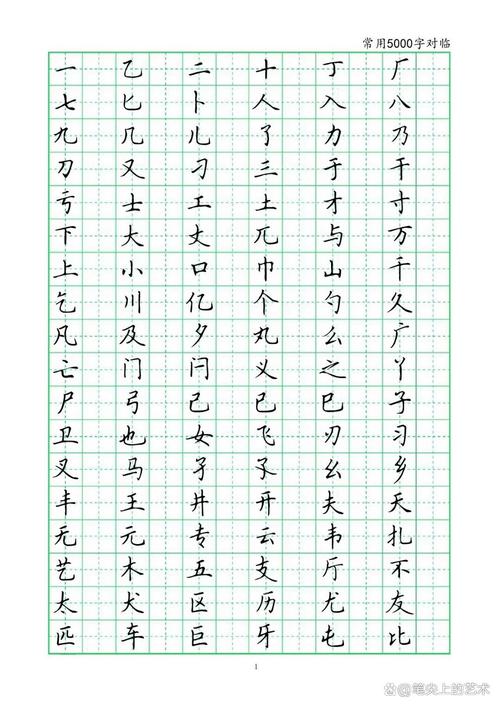 常用5000字对临
一 乙 二 十 丁 厂
七 匕 卜 人 入 八
九 几 儿 了 力 乃
刀 又 刁 三 于 干
亏 士 工 土 才 寸
下 大 丈 兀 与 万
上 小 口 巾 山 千
乞 川 亿 个 勺 久
凡 及 夕 丸 么 广
亡 门 闩 义 之 丫
尸 弓 己 已 巳 子
卫 也 女 飞 刃 习
叉 马 孑 孓 幺 乡
丰 王 井 开 夫 天
无 元 专 云 韦 扎
艺 木 五 支 厅 不
太 犬 区 历 尤 友
匹 车 巨 牙 屯 比
1
笔尖上的艺术